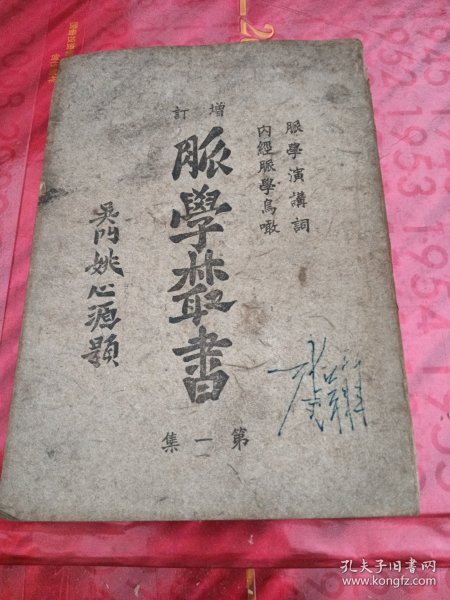 增訂
脈學叢書
脈學演講詞
內經脈學鳥瞰
吴門姚心源題
第一集
1952
1953
1954
孔夫子旧书网
www.kongfz.com